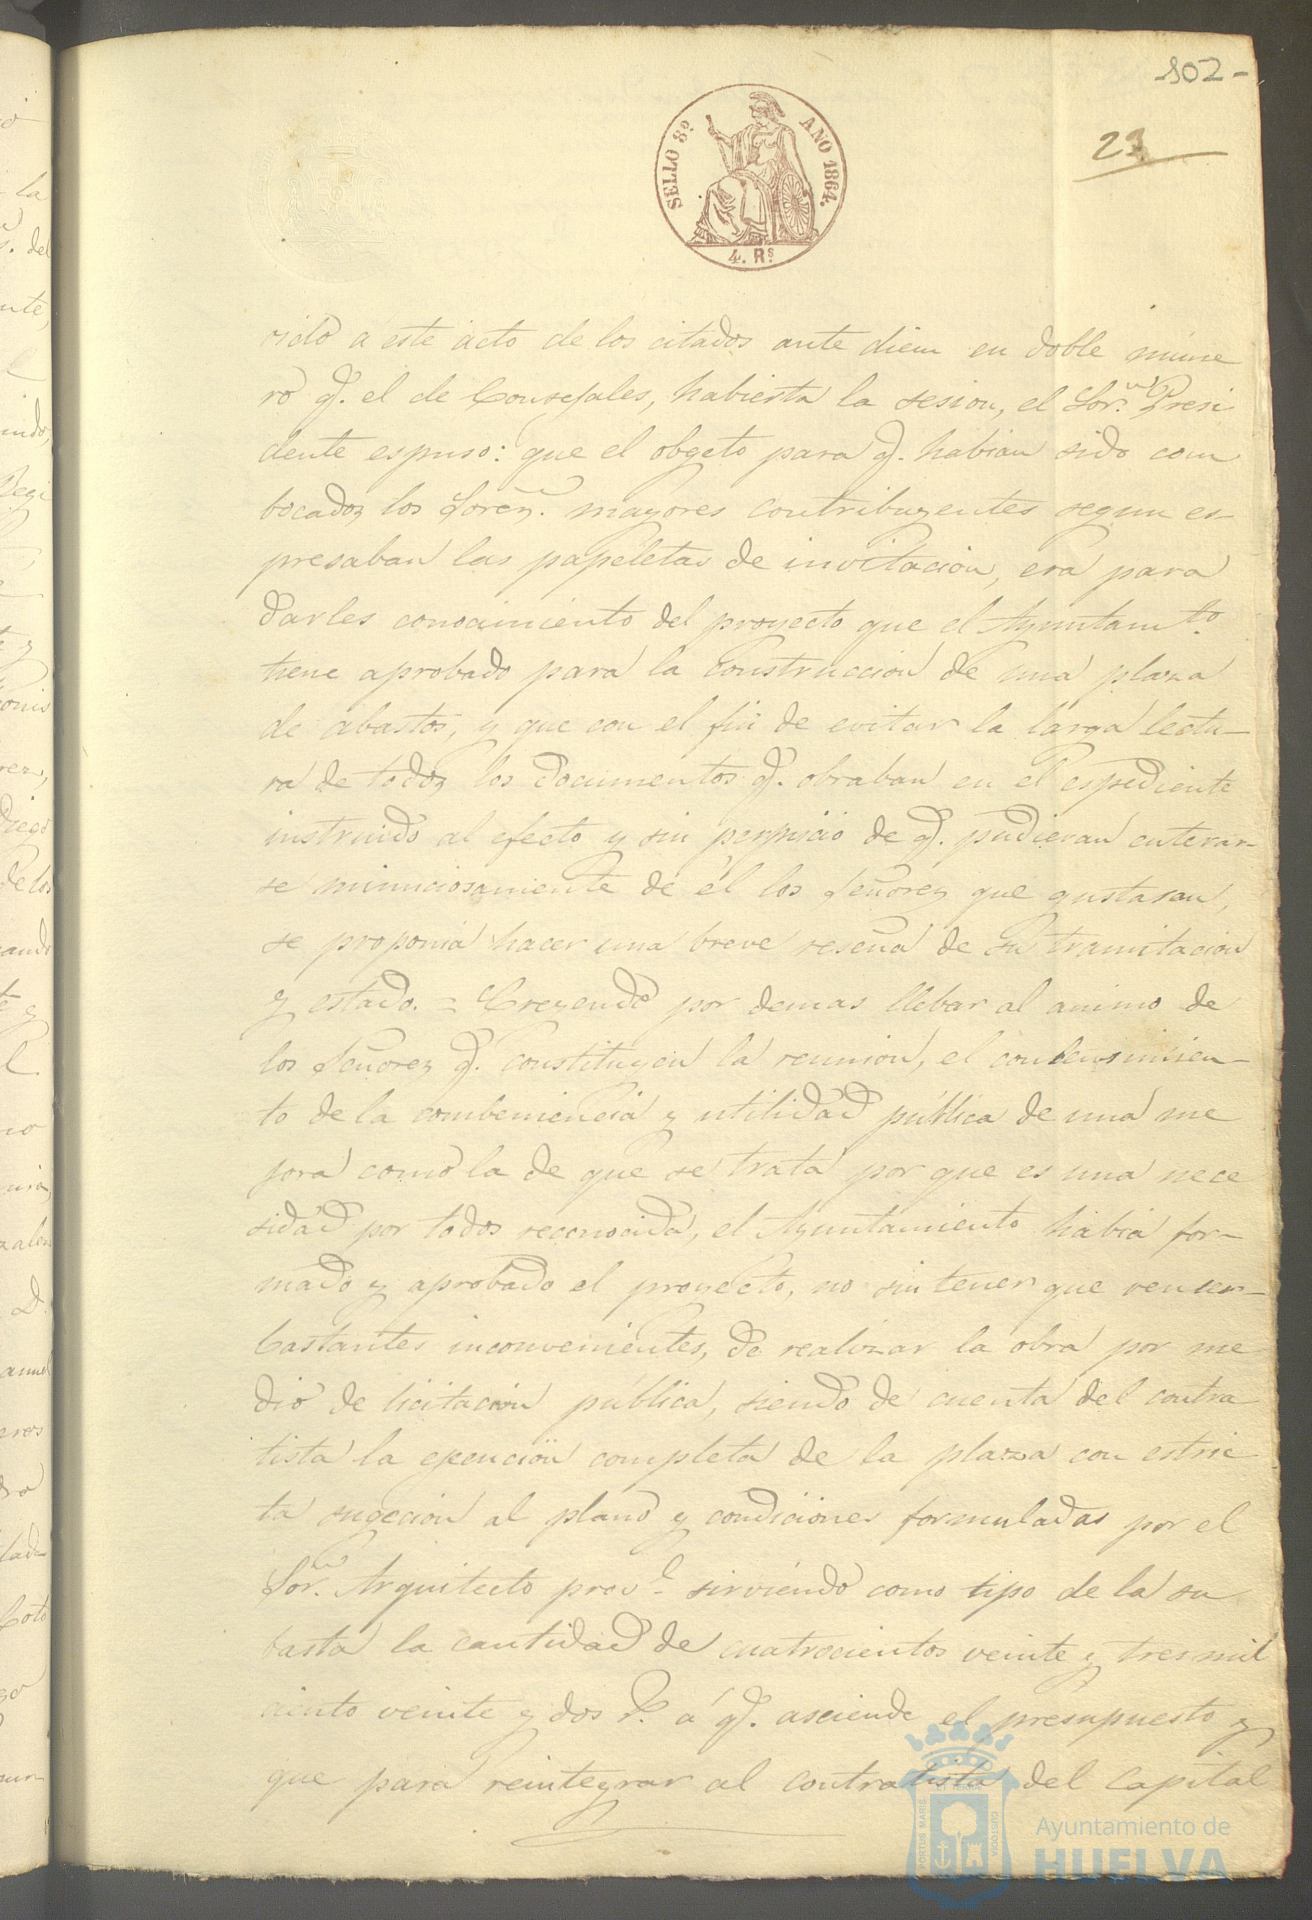 102-
23
SELLO 8º AÑO 1864.
4. Rs
rido a este acto de los citados ante diem en doble núme
ro q. el de Consejales, habierta la sesion, el Sor. Presi
dente espuso: que el obgeto para q. habian sido com
bocados los Sores. mayores contribuyentes segun es-
presaban las papeletas de invitacion, era para
darles conocimiento del proyecto que el Ayuntamto.
tiene aprobado para la construccion de una plaza
de abastos, y que con el fin de evitar la larga lectu-
ra de todos los documentos q. obraban en el espediente
instruido al efecto y sin perjuicio de q. pudieran enterar-
se minuciosamente de él los Señores que gustasen,
se proponia hacer una breve reseña de su tramitacion
y estado. = Creyendo por demas llebar al animo de
los Señores q. constituyen la reunion, el conbensimien-
to de la combeniencia y utilidad pública de una me
jora como la de que se trata por que es una nece
sidad por todos reconocida, el Ayuntamiento habia for-
mado y aprobado el proyecto, no sin tener que vencer
bastantes inconvenientes, de realizar la obra por me
dio de licitacion pública, siendo de cuenta del contra
tista la ejecucion completa de la plaza con estric
ta sugecion al plano y condiciones formuladas por el
Sor. Arquitecto provl. sirviendo como tipo de la su
basta la cantidad de cuatrocientos veinte y tres mil
ciento veinte y dos r. á q. asciende el presupuesto y
que para reintegrar al contratista del Capital
Ayuntamiento de
HUELVA